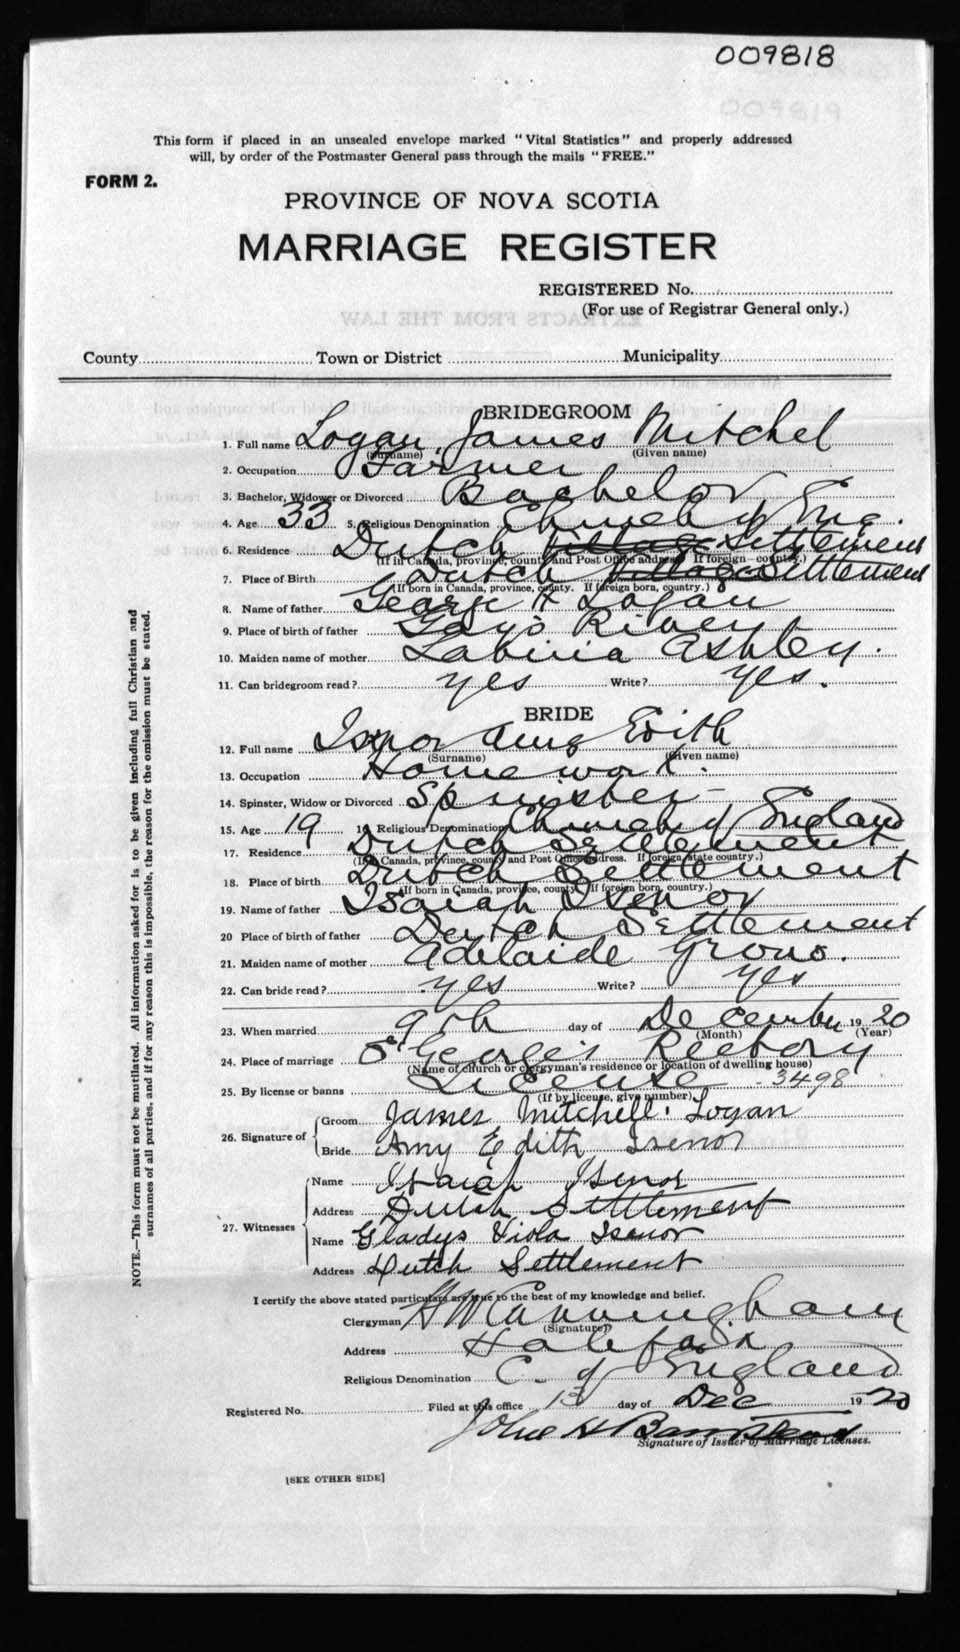 009818
This form if placed in an unsealed envelope marked "Vital Statistics" and properly addressed
will, by order of the Postmaster General pass through the mails "FREE."
FORM 2.
PROVINCE OF NOVA SCOTIA
MARRIAGE REGISTER
REGISTERED No.
(For use of Registrar General only.)
EXTRACTS FROM THE LAW
County Town or District Municipality
BRIDEGROOM
1. Full name Logan, James Mitchel
(Surname) (Given name)
2. Occupation Farmer
3. Bachelor, Widower or Divorced Bachelor
4. Age 33 5. Religious Denomination Church of Eng.
6. Residence Dutch Village Settlement
(If in Canada, province, county and Post Office address. If foreign—country.)
7. Place of Birth Dutch Village Settlement
(If born in Canada, province, county. If foreign born, country.)
8. Name of father George Logan
9. Place of birth of father Gays River
10. Maiden name of mother Labinia Ashley.
11. Can bridegroom read? yes Write? yes.
BRIDE
12. Full name Isnor Amy Edith
(Surname) (Given name)
13. Occupation Homework.
14. Spinster, Widow or Divorced Spinster
15. Age 19 16 Religious Denomination Church of England
17. Residence Dutch Settlement
(If in Canada, province, county and Post Office address. If foreign state country.)
18. Place of birth Dutch Settlement
(If born in Canada, province, county. If foreign born, country.)
19. Name of father Isaiah Isenor
20 Place of birth of father Dutch Settlement
21. Maiden name of mother Adelaide Grono.
22. Can bride read? yes Write? yes
23. When married 9th day of December 1920
(Month) (Year)
24. Place of marriage St George's Rectory
(Name of church or clergyman's residence or location of dwelling house)
25. By license or banns License 3498
(If by license, give number)
26. Signature of Groom James Mitchell Logan
Bride Amy Edith Isenor
27. Witnesses Name Isaiah Isenor
Address Dutch Settlement
Name Gladys Viola Isenor
Address Dutch Settlement
I certify the above stated particulars are true to the best of my knowledge and belief.
Clergyman H W Cunningham
(Signature)
Address Halifax
Religious Denomination C. of England
Registered No. Filed at this office 13 day of Dec 1920
John H Barnstead
Signature of Issuer of Marriage Licenses.
[SEE OTHER SIDE]
NOTE.—This form must not be mutilated. All information asked for is to be given including full Christian and
surnames of all parties, and if for any reason this is impossible, the reason for the omission must be stated.